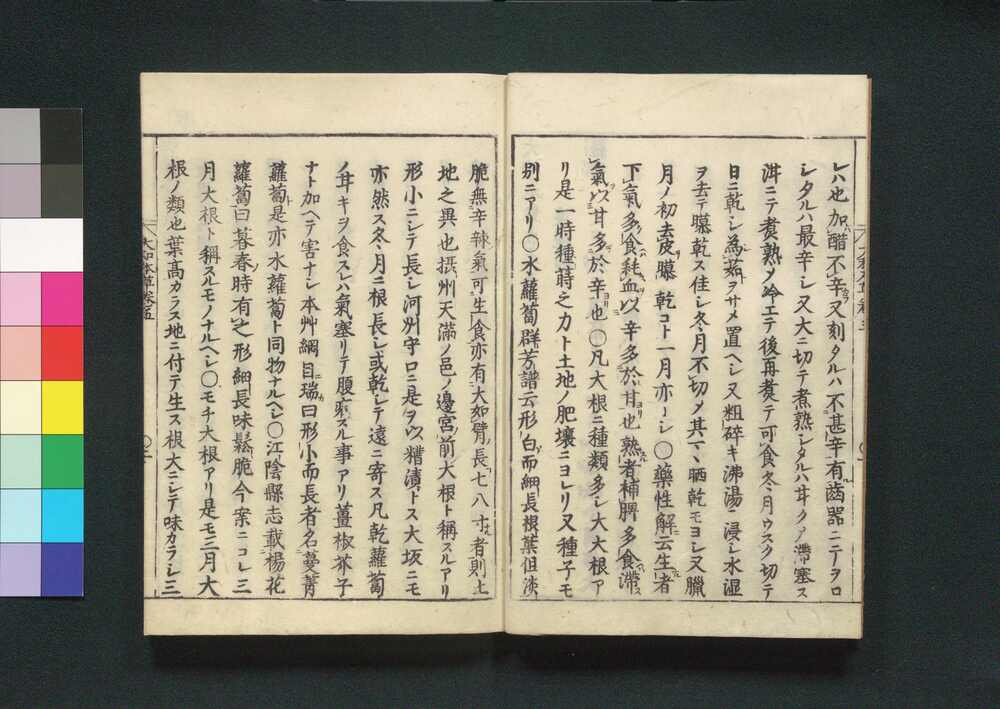 レハ也加醋不辛又刻タルハ不甚辛有齒器ニテヲロ
シタルハ最辛シ又大ニ切テ煮熟シタルハ甘クノ滯塞ス
泔ニテ煮熟ノ冷エテ後再煮テ可食冬月ウスク切テ
日ニ乾シ為茹ヲサメ置ヘシ又粗碎キ沸湯ニ浸シ水濕
ヲ去テ曝乾ス佳シ冬月不切ノ其マヽ晒乾モヨシ又臘
月ノ初去皮曝乾コト一月亦ヨシ〇藥性解云生者
下氣多食耗血以辛多於甘也熟者補脾多食滯
氣以甘多於辛也〇凡大根ニ種類多シ大大根ア
リ是一時種蒔之力ト土地ノ肥壤ニヨレリ又種子モ
別ニアリ〇水蘿蔔群芳譜云形白而細長根葉但淡
脆無辛辣氣可生食亦有大如臂長七八寸者則土
地之異也攝州天滿ノ邑ノ邊宮前大根ト稱スルアリ
形小ニシテ長シ河州守口ニ是ヲ以糟漬トス大坂ニモ
亦然ス冬月ニ根長シ或乾シテ遠ニ寄ス凡乾蘿蔔
ノ甘キヲ食スレハ氣塞リテ腹脹スル事アリ薑椒芥子
ナト加ヘテ害ナシ本艸綱目瑞曰形小而長者名蔓菁
蘿蔔是亦水蘿蔔ト同物ナルヘシ〇江陰縣志載楊花
蘿蔔曰暮春時有之形細長味鬆脆今案ニコレ三
月大根ト稱スルモノナルヘシ〇モチ大根アリ是モ三月大
根ノ類也葉高カラス地ニ付テ生ス根大ニシテ味カラシ三
大和本草卷五